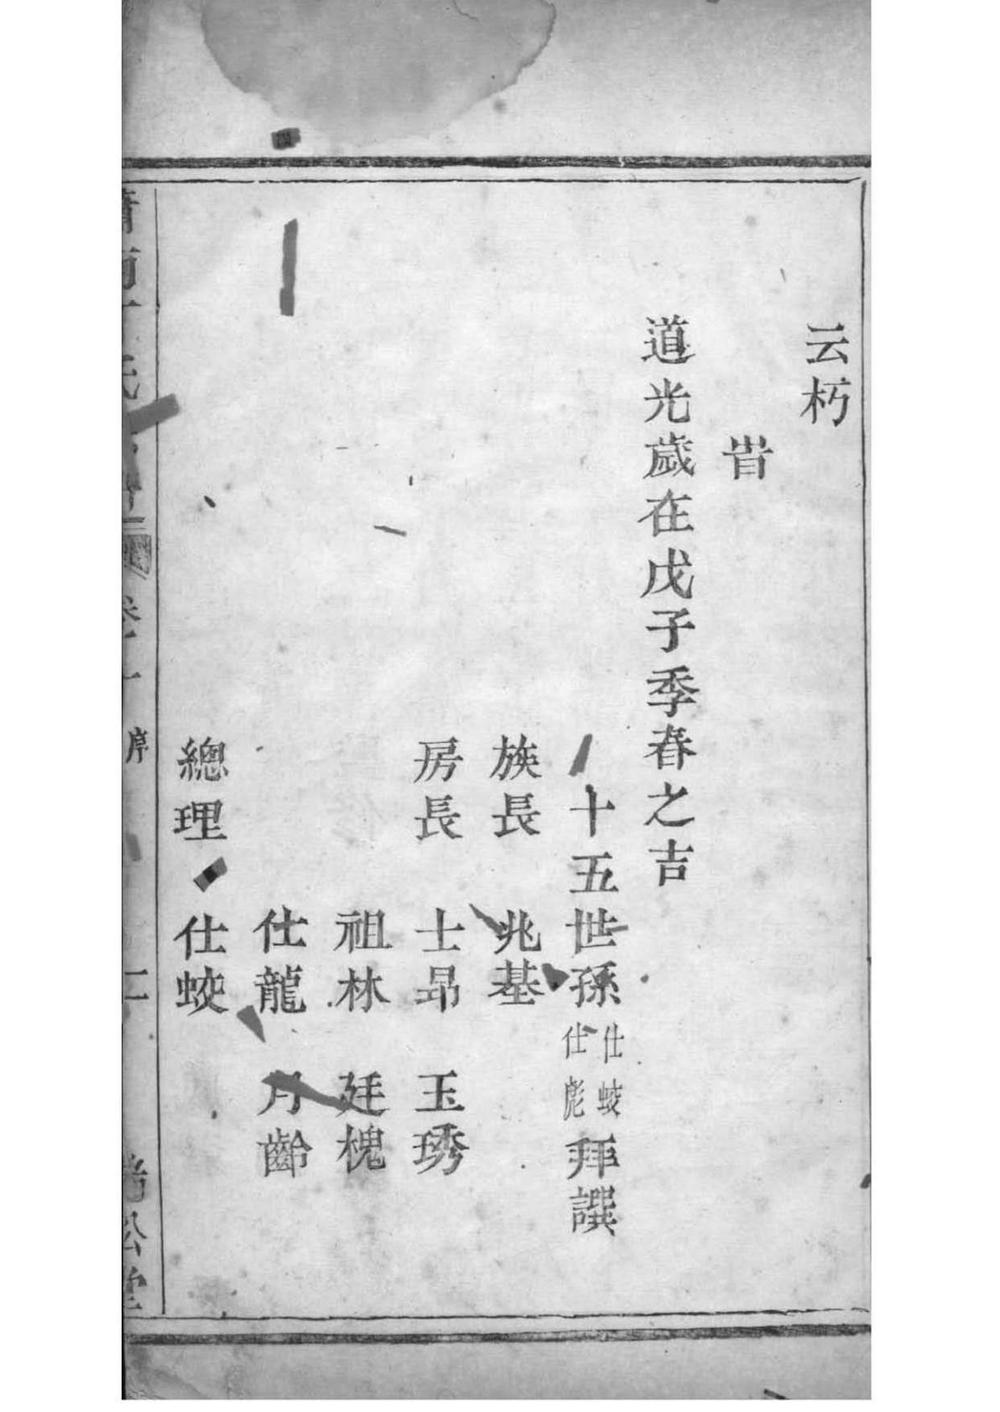 云朽
旹
道光歲在戊子季春之吉
十五世孫仕蛟仕彪拜譔
族長 兆基
房長 士昂 玉琇
祖林 廷槐
仕龍 月齡
總理 仕蛟
序